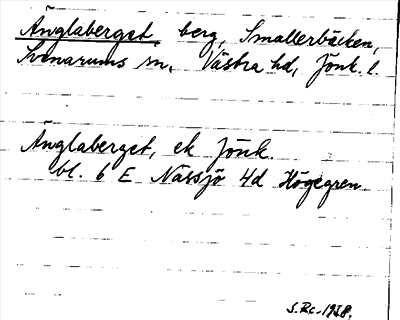 Änglaberget, berg, Smallerbäcken,
Svenarums sn, Västra hd, Jönk. l.
Änglaberget, ek Jönk.
bl. 6 E Nässjö 4d Högegren.
S.Rc. 1978.